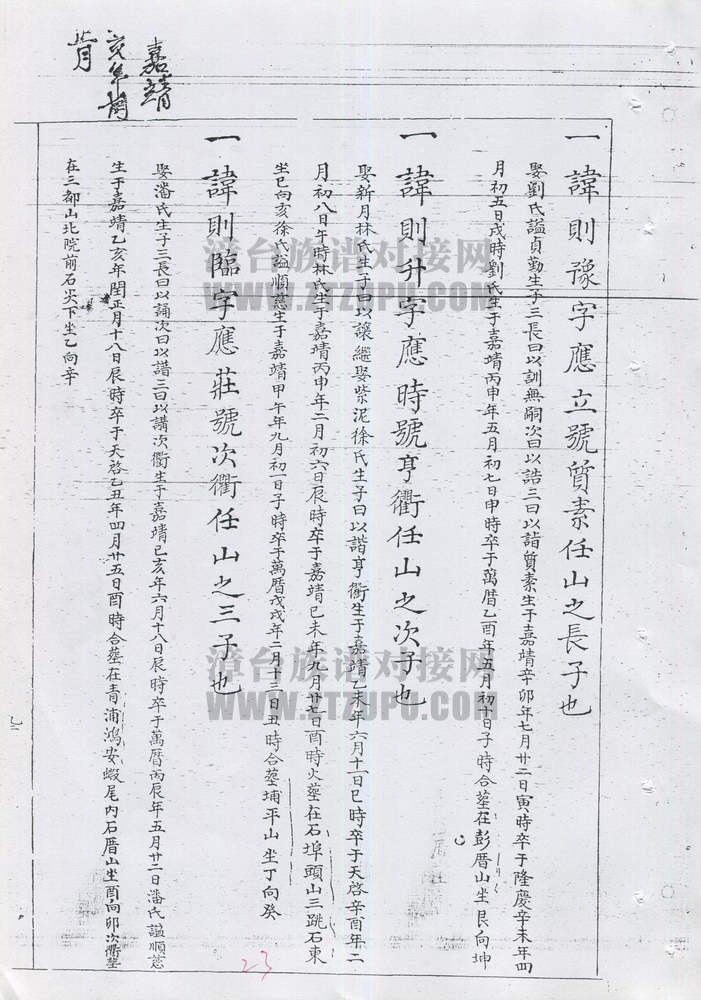 一諱則豫字應立號質素任山之長子也
娶劉氏謚貞勤生子三長曰以訓無嗣次曰以誥三曰以詣質素生于嘉靖辛卯年七月廿二日寅時卒于隆慶辛未年四
月初五日戌時劉氏生于嘉靖丙申年五月初七日申時卒于萬曆乙酉年五月初十日子時合塟在彭厝山坐艮向坤
一諱則升字應時號亨衢任山之次子也
娶新月林氏生子曰以讓繼娶紫泥徐氏生子曰以諧亨衢生于嘉靖乙未年六月十一日巳時卒于天啓辛酉年二
月初八日午時林氏生于嘉靖丙申年二月初六日辰時卒于嘉靖己未年九月廿七日酉時火塟在石埠頭山三跳石東
坐巳向亥徐氏謚順慈生于嘉靖甲午年九月初一日子時卒于萬曆戊戌年二月十三日丑時合塟埔平山坐丁向癸
一諱則臨字應莊號次衢任山之三子也
娶潘氏生子三長曰以誦次曰以譜三曰以講次衢生于嘉靖己亥年六月十八日辰時卒于萬曆丙辰年五月廿二日潘氏謚順慈
生于嘉靖乙亥年閏正月十八日辰時卒于天啓乙丑年四月廿五日酉時合塟在青浦鴻安蝦尾內石厝山坐酉向卯次衢塟
在三都山北院前石尖下坐乙向辛
嘉靖
亥年閏
正月
漳台族谱对接网
WWW.ZTZUPU.COM
漳台族谱对接网
WWW.ZTZUPU.COM
23